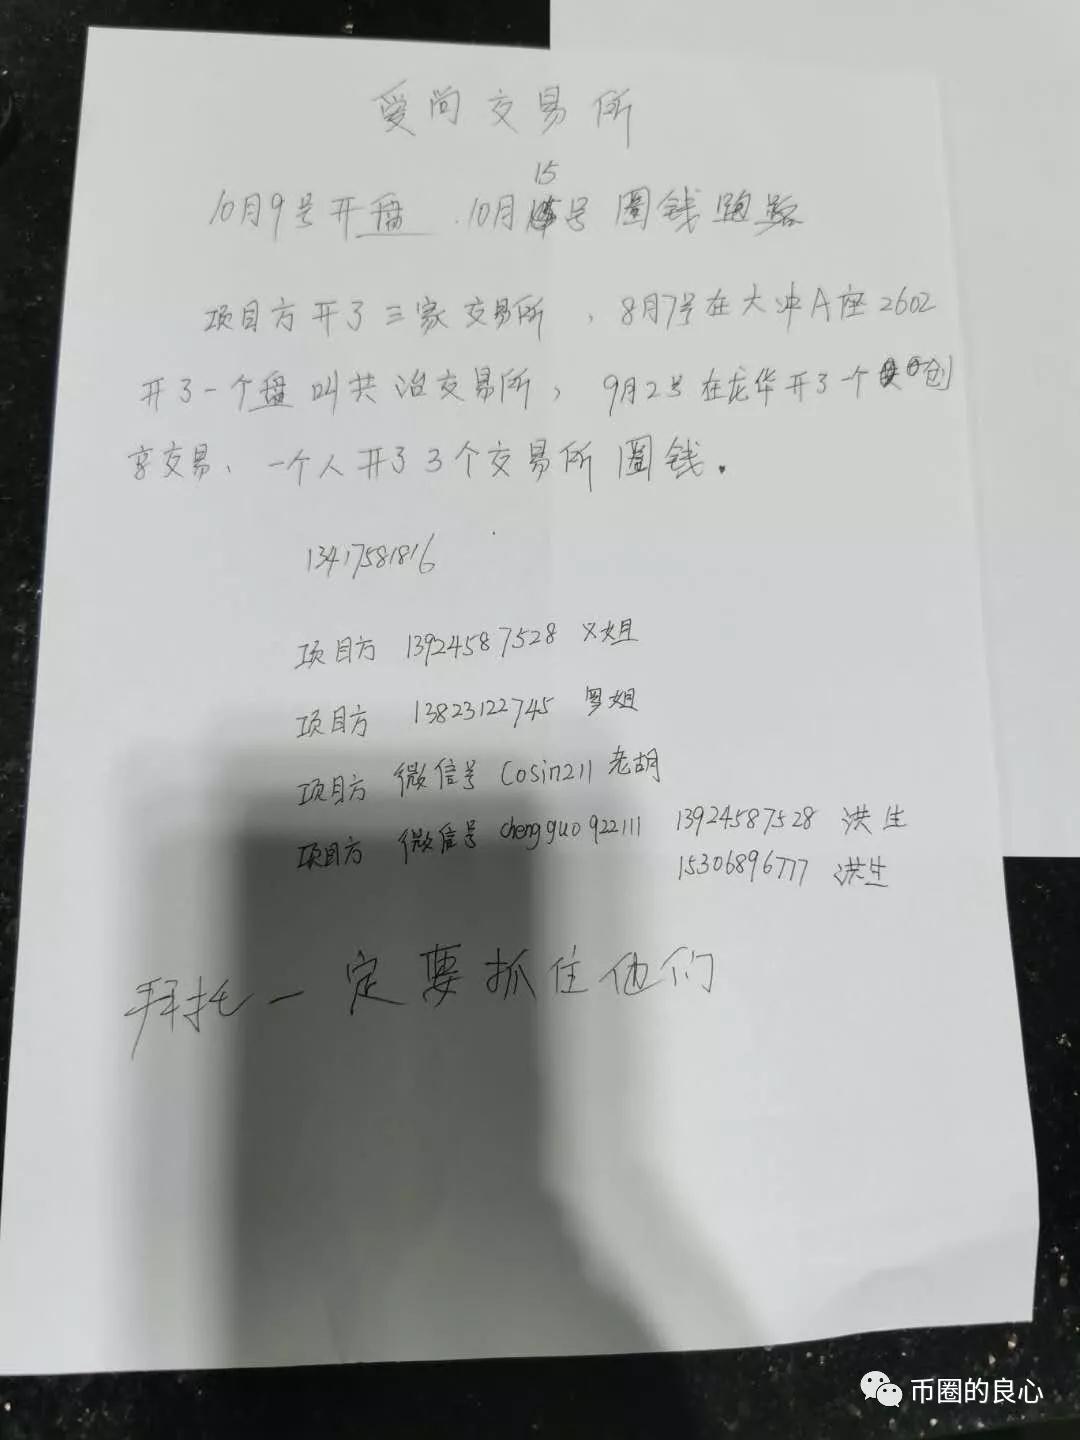 爱尚交易所
15
10月9号开盘.10月号圈钱跑路
项目方开了三家交易所，8月7号在大冲A座2602
开了一个盘叫共治交易所，9月2号在龙华开了一个创
享交易、一个人开了3个交易所圈钱.
13417581816
项目方 13924587528 义姐
项目方 13823122745 罗姐
项目方 微信号 Cosin211 老胡
项目方 微信号 chengguo922111 13924587528 洪生
15306896777 洪生
拜托一定要抓住他们
币圈的良心